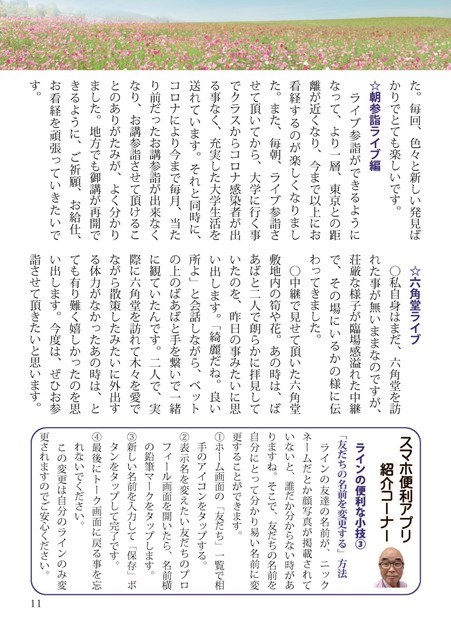 た。毎回、色々と新しい発見ば
かりでとても楽しいです。
☆朝参詣ライブ編
ライブ参詣ができるように
なって、より一層、東京との距
離が近くなり、今まで以上にお
看経するのが楽しくなりまし
た。また、毎朝、ライブ参詣さ
せて頂いてから、大学に行く事
でクラスからコロナ感染者が出
る事なく、充実した大学生活を
送れています。それと同時に、
コロナにより今まで毎月、当た
り前だったお講参詣が出来なく
なり、お講参詣させて頂けるこ
とのありがたみが、よく分かり
ました。地方でも御講が再開で
きるように、ご祈願、お給仕、
お看経を頑張っていきたいで
す。
☆六角堂ライブ
〇私自身はまだ、六角堂を訪
れた事が無いままなのですが、
荘厳な様子が臨場感溢れた中継
で、その場にいるかの様に伝
わってきました。
〇中継で見せて頂いた六角堂
敷地内の筍や花。あの時は、ば
あばと二人で朗らかに拝見して
いたのを、昨日の事みたいに思
い出します。「綺麗だね。良い
所よ」と会話しながら、ベット
の上のばあばと手を繋いで一緒
に観ていたんです。二人で、実
際に六角堂を訪れて木々を愛で
ながら散策したみたいに外出す
る体力がなかったあの時は、と
ても有り難く嬉しかったのを思
い出します。今度は、ぜひお参
詣させて頂きたいと思います。
スマホ便利アプリ
紹介コーナー
ラインの便利な小技③
「友だちの名前を変更する」方法
ラインの友達の名前が、ニック
ネームだとか顔写真が掲載されて
いないと、誰だか分からない時があ
りますね。そこで、友だちの名前を
自分にとって分かり易い名前に変
更することができます。
①ホーム画面の「友だち」一覧で相
手のアイコンをタップする。
②表示名を変えたい友だちのプロ
フィール画面を開いたら、名前横
の鉛筆マークをタップします。
③新しい名前を入力して「保存」ボ
タンをタップして完了です。
④最後にトーク画面に戻る事を忘
れないでください。
この変更は自分のラインのみ変
更されますのでご安心ください。
11